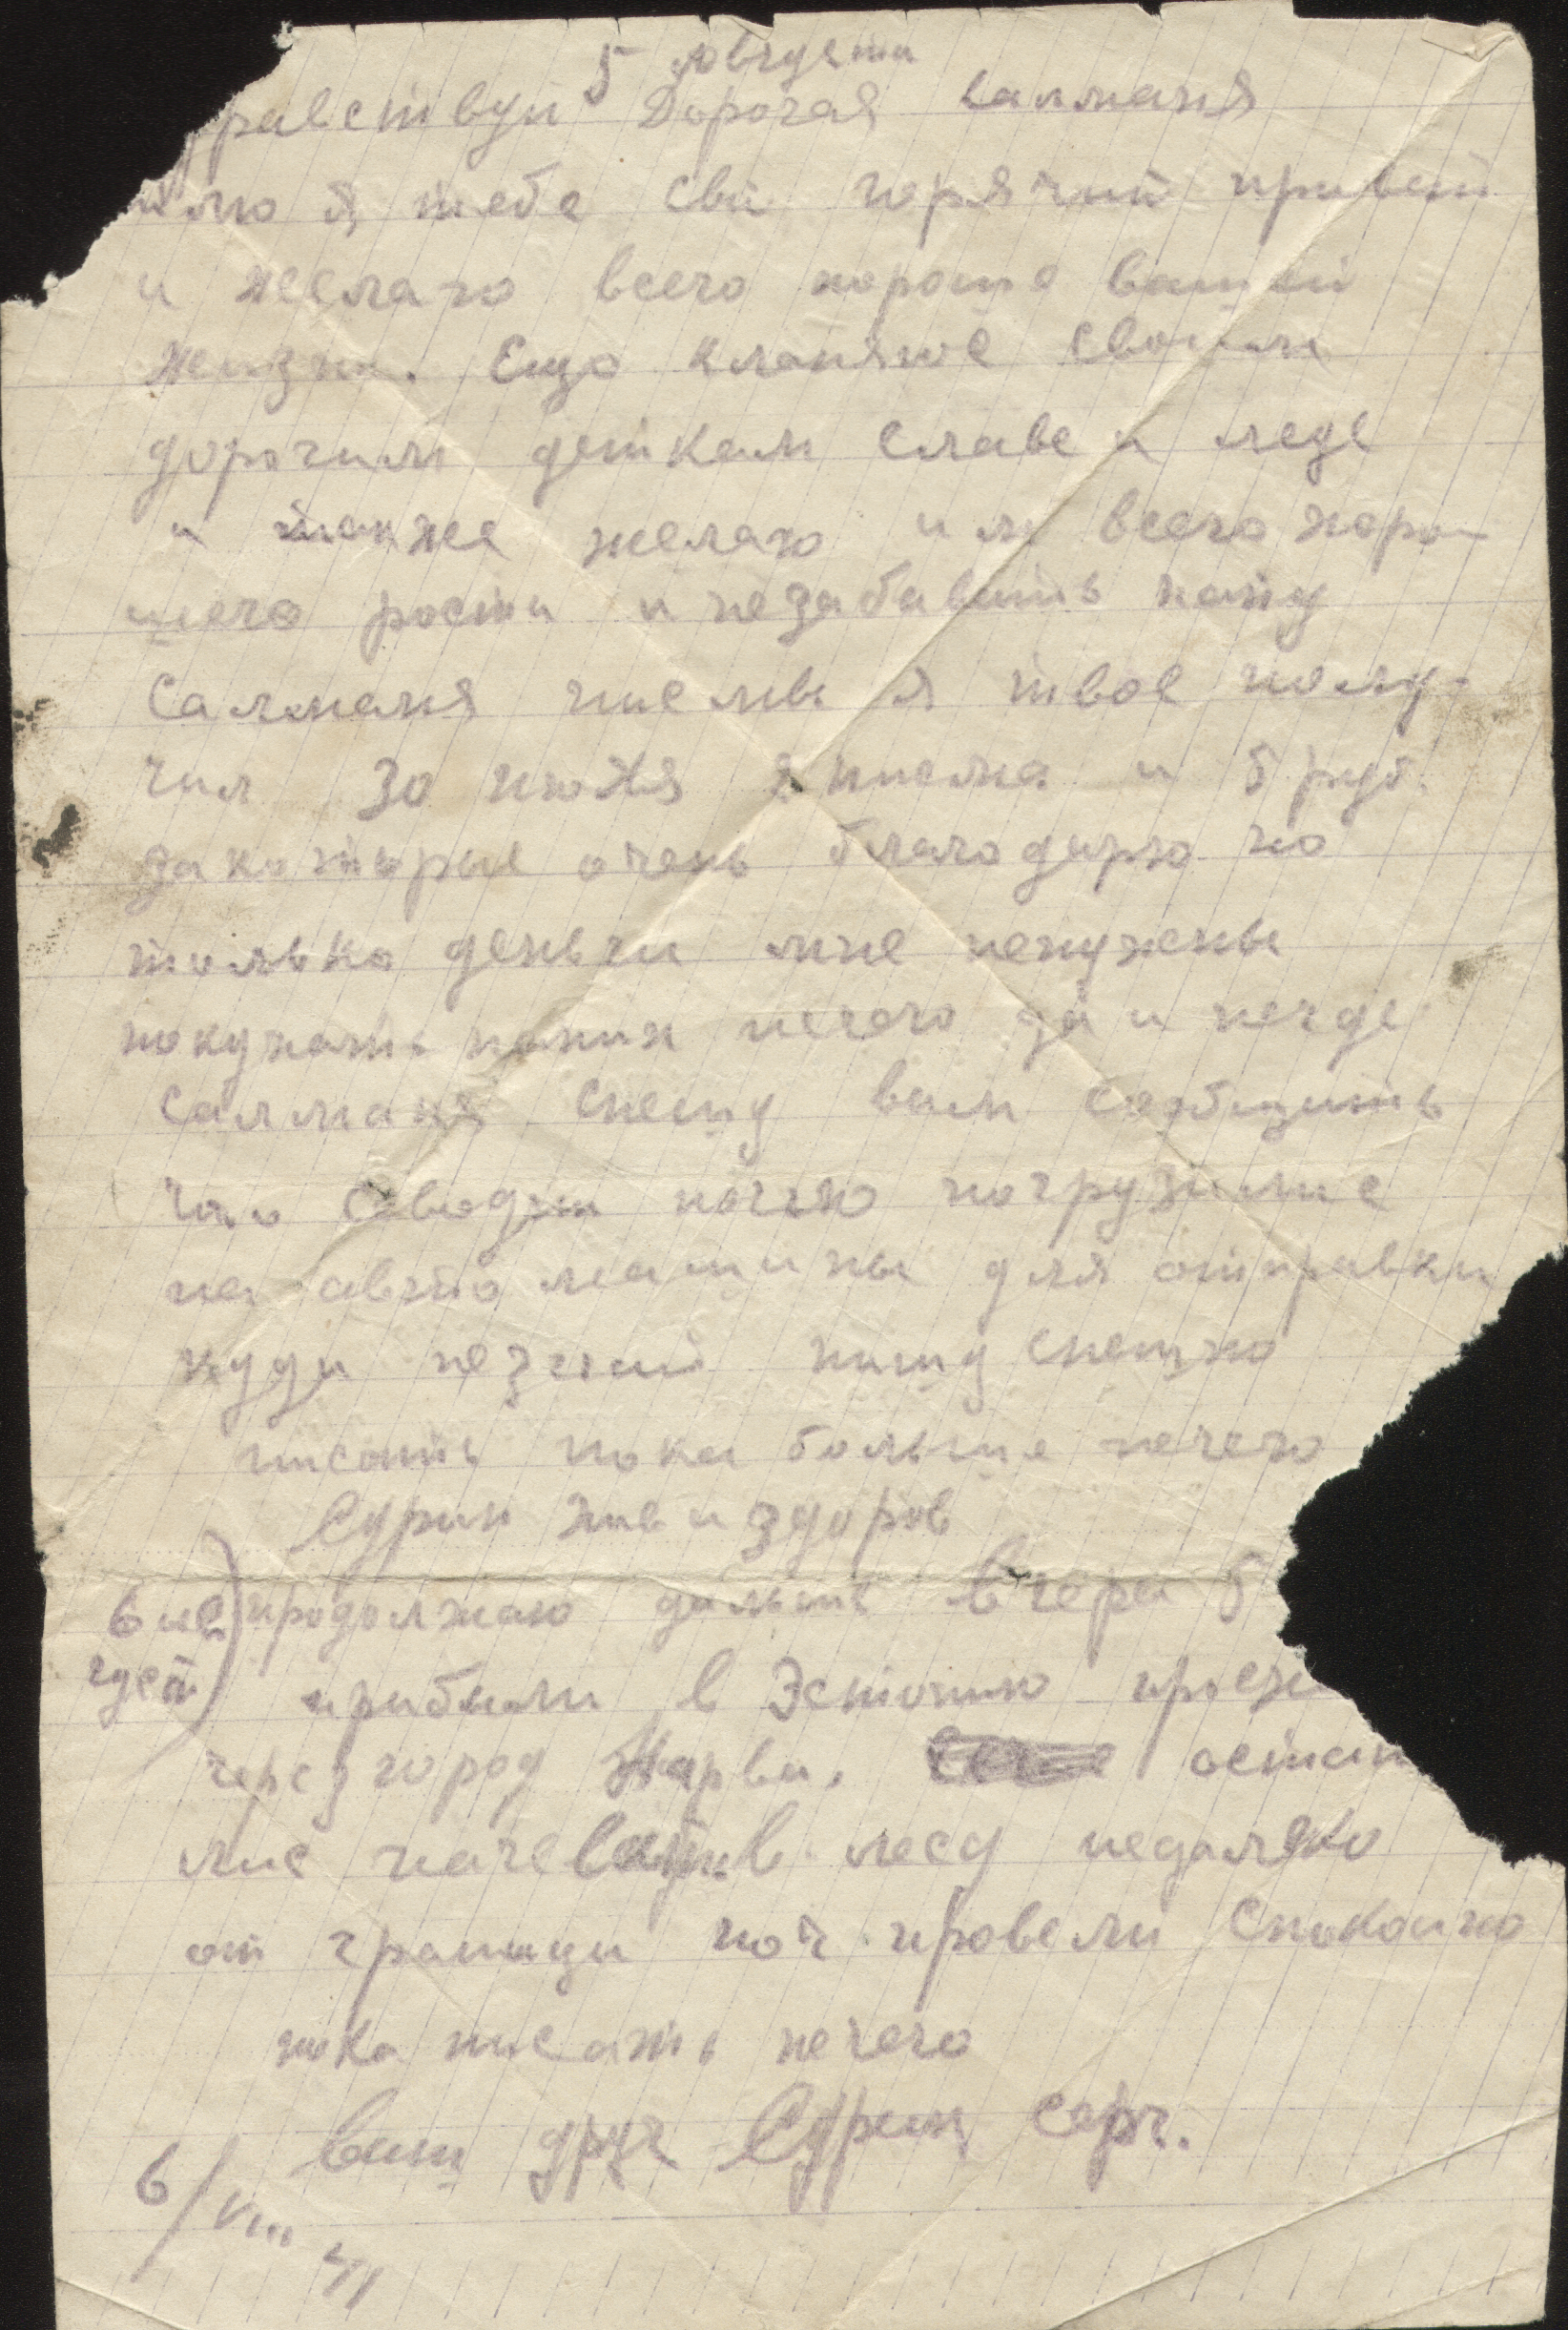 5 августа
равствуй Дорогая Салманя
шлю я тебе свй горячий привет
и желаю всего хороше вашей
жизни. Ещо кланяюс своим
дорогим деткам Славе и леде
и также желаю им всего хоро-
шего рости и незабавить папу
Салманя писмы я твое полу-
чил 30 июля писма и 5 руб.
закоторые очень благодарю но
только деньги мне ненужены
покупать нечего да и негде
Салманя спешу вам сообщить
что севодни ночью погрузилис
на авто машины для отправки
куда незнай пишу спешно
писать пока больше нечего
Сурин жив и здоров
6 ав продолжаю дальше вчера 5
густ прибыли в Эстонию проез
через город Нарва. остан
лис начевать в лесу недалеко
от границы ноч провели спокоино
пока писать нечего
ваш друг Сурин Серг.
6/VIII 41